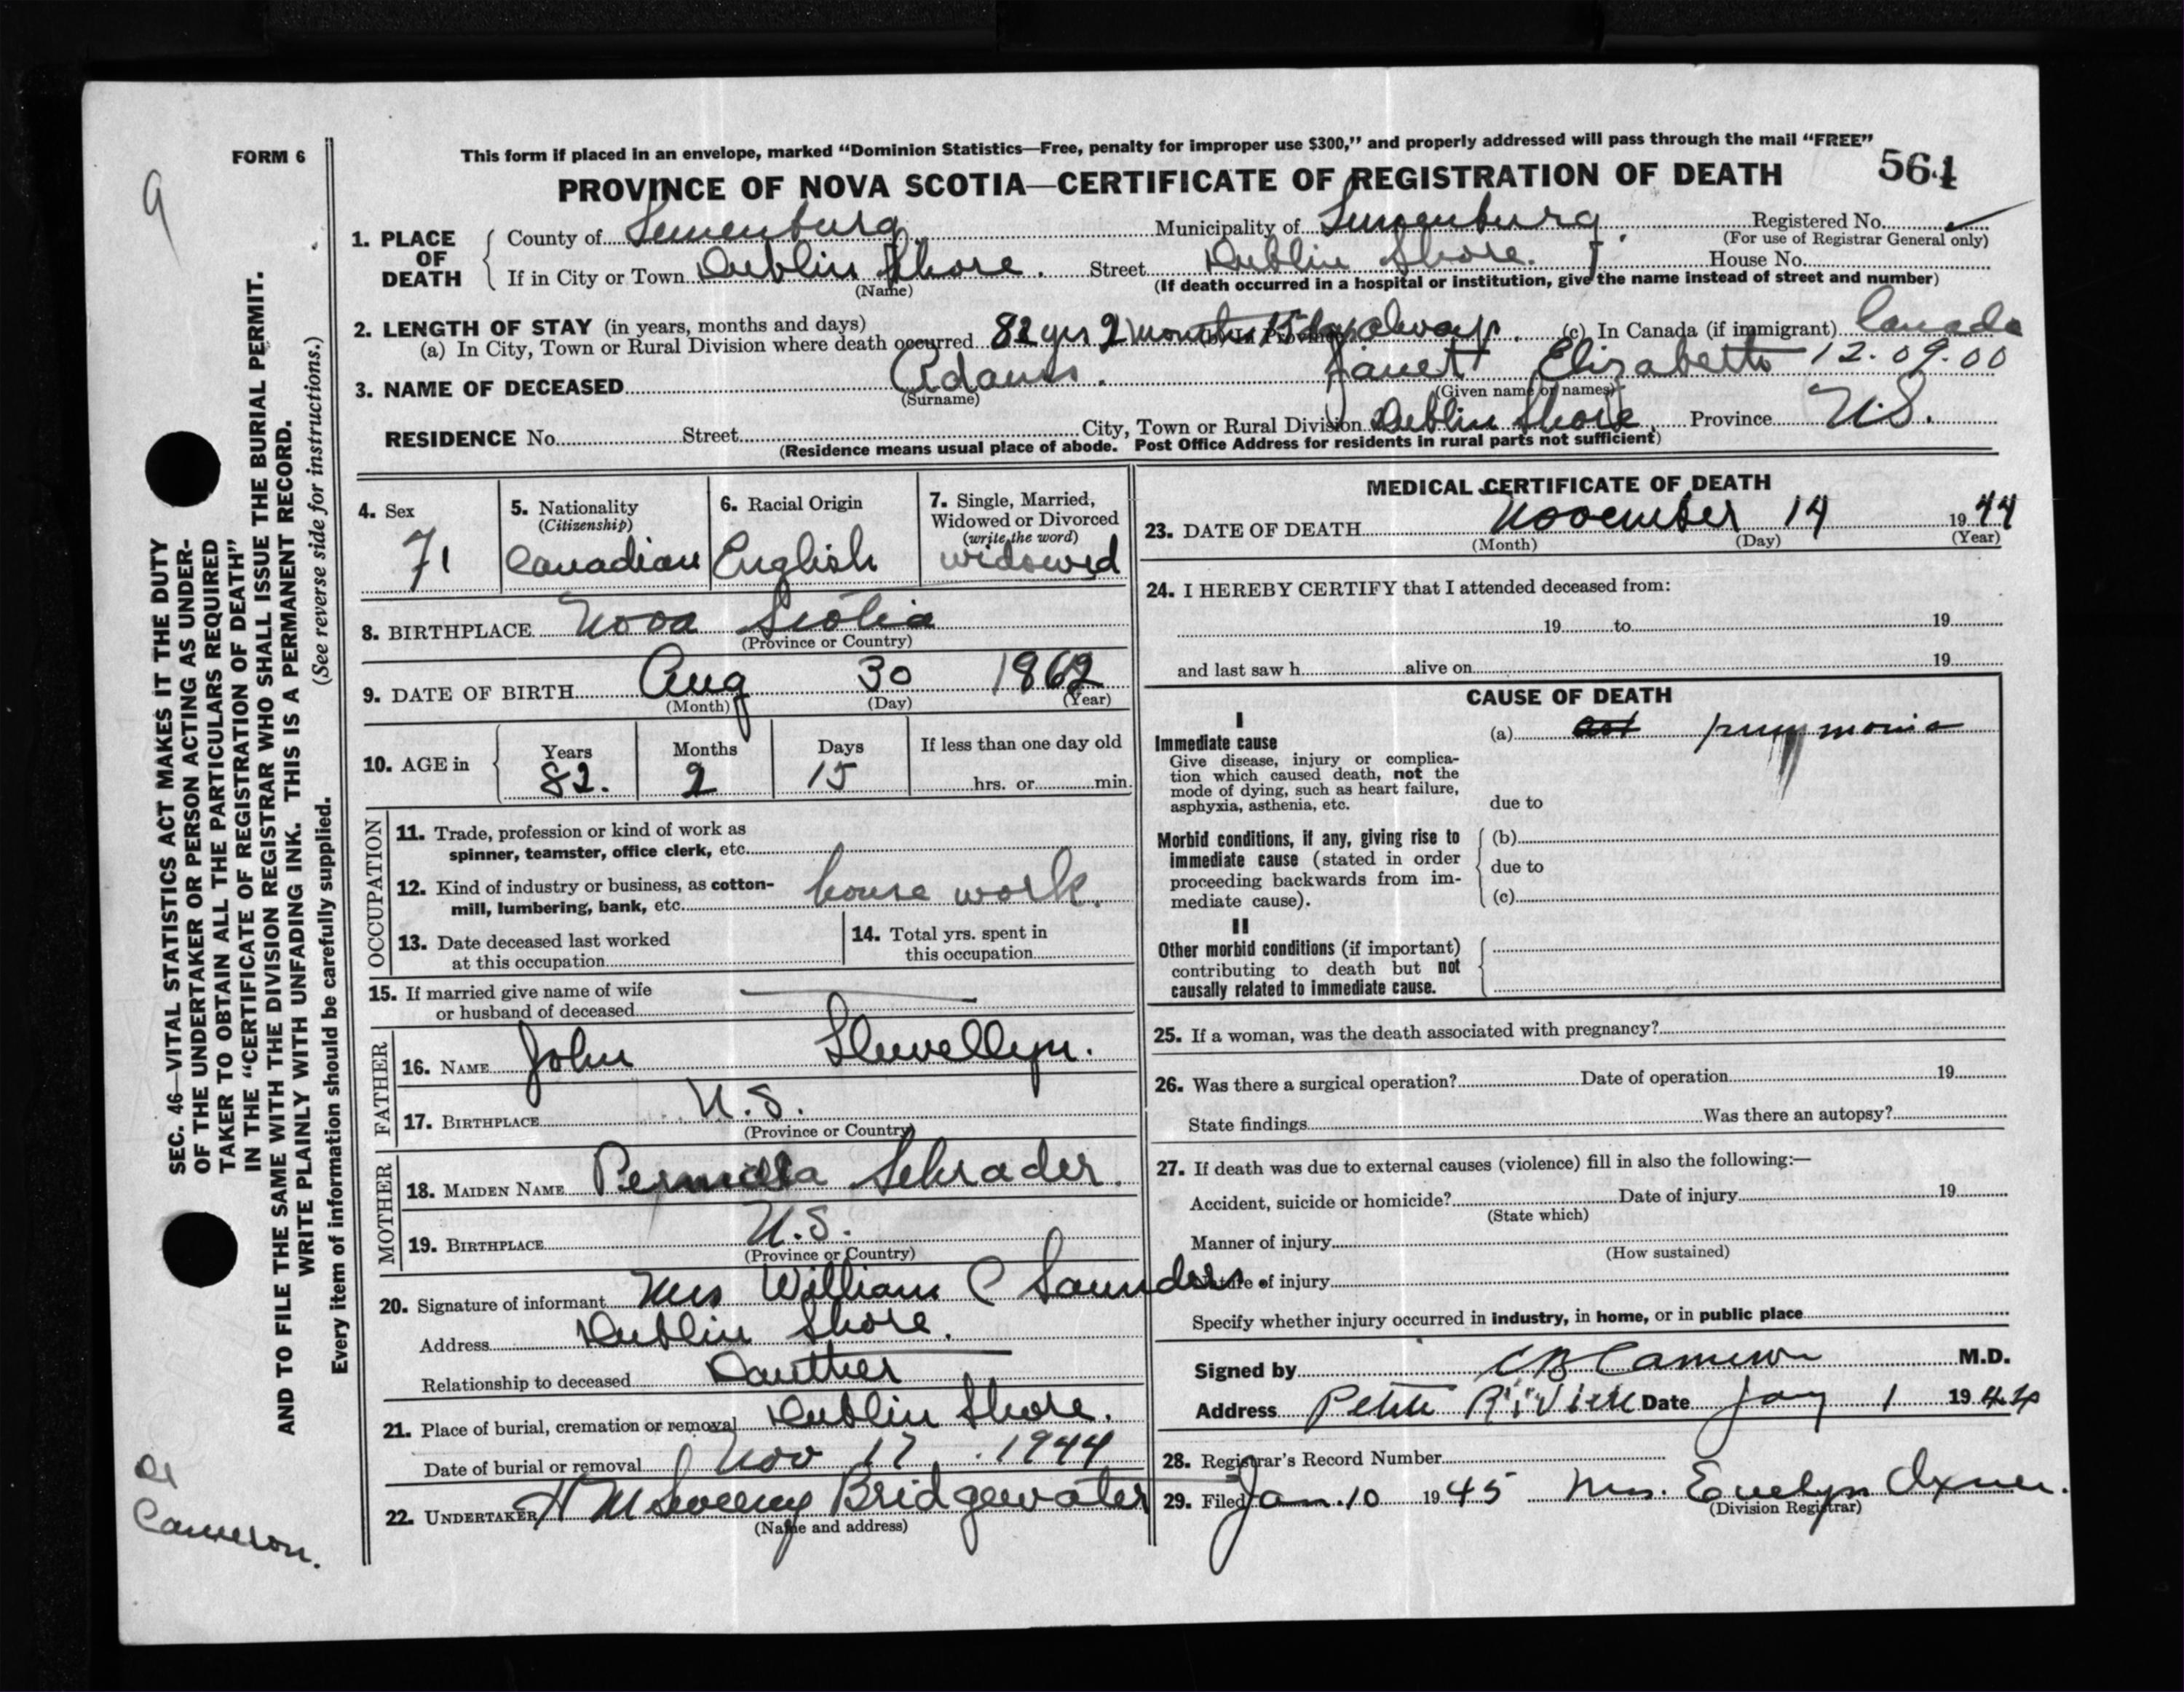 FORM 6
This form if placed in an envelope, marked "Dominion Statistics—Free, penalty for improper use $300," and properly addressed will pass through the mail "FREE"
PROVINCE OF NOVA SCOTIA—CERTIFICATE OF REGISTRATION OF DEATH 561
9
1. PLACE OF DEATH County of Lunenburg Municipality of Lunenburg Registered No.
(For use of Registrar General only)
If in City or Town Dublin Shore. Street Dublin Shore. House No.
(Name) (If death occurred in a hospital or institution, give the name instead of street and number)
2. LENGTH OF STAY (in years, months and days)
(a) In City, Town or Rural Division where death occurred 82 yrs 2 months 15 days always. (c) In Canada (if immigrant) Canada
3. NAME OF DECEASED Adams. Janet Elizabeth 12.09.00
(Surname) (Given name or names)
RESIDENCE No. Street City, Town or Rural Division Dublin Shore Province N.S.
(Residence means usual place of abode. Post Office Address for residents in rural parts not sufficient)
4. Sex
F
5. Nationality
(Citizenship)
Canadian
6. Racial Origin
English
7. Single, Married,
Widowed or Divorced
(write the word)
widowed
8. BIRTHPLACE Nova Scotia
(Province or Country)
9. DATE OF BIRTH Aug 30 1862
(Month) (Day) (Year)
10. AGE in Years Months Days If less than one day old
82. 2 15 hrs. or min.
OCCUPATION
11. Trade, profession or kind of work as
spinner, teamster, office clerk, etc.
12. Kind of industry or business, as cotton-
mill, lumbering, bank, etc. house work.
13. Date deceased last worked
at this occupation
14. Total yrs. spent in
this occupation
15. If married give name of wife
or husband of deceased
FATHER
16. NAME John Llewellyn.
17. BIRTHPLACE N.S.
(Province or Country)
MOTHER
18. MAIDEN NAME Schrader.
19. BIRTHPLACE N.S.
(Province or Country)
20. Signature of informant Mrs William C Saunders
Address Dublin Shore.
Relationship to deceased Dauther
21. Place of burial, cremation or removal Dublin Shore.
Date of burial or removal Nov 17. 1944
22. UNDERTAKER Bridgewater
(Name and address)
MEDICAL CERTIFICATE OF DEATH
23. DATE OF DEATH November 14 1944
(Month) (Day) (Year)
24. I HEREBY CERTIFY that I attended deceased from:
19 to 19
and last saw h alive on 19
CAUSE OF DEATH
I
Immediate cause
Give disease, injury or complica-
tion which caused death, not the
mode of dying, such as heart failure,
asphyxia, asthenia, etc.
(a)
due to
Morbid conditions, if any, giving rise to
immediate cause (stated in order
proceeding backwards from im-
mediate cause).
(b)
due to
(c)
II
Other morbid conditions (if important)
contributing to death but not
causally related to immediate cause.
25. If a woman, was the death associated with pregnancy?
26. Was there a surgical operation? Date of operation 19
State findings Was there an autopsy?
27. If death was due to external causes (violence) fill in also the following:—
Accident, suicide or homicide? Date of injury 19
(State which)
Manner of injury
(How sustained)
Nature of injury
Specify whether injury occurred in industry, in home, or in public place
Signed by C B Cameron M.D.
Address Petite Riviere Date Jany 1 1944
28. Registrar's Record Number
29. Filed Jan. 10 1945 Mrs. Evelyn Oxner.
(Division Registrar)
SEC. 46—VITAL STATISTICS ACT MAKES IT THE DUTY
OF THE UNDERTAKER OR PERSON ACTING AS UNDER-
TAKER TO OBTAIN ALL THE PARTICULARS REQUIRED
IN THE "CERTIFICATE OF REGISTRATION OF DEATH"
AND TO FILE THE SAME WITH THE DIVISION REGISTRAR WHO SHALL ISSUE THE BURIAL PERMIT.
WRITE PLAINLY WITH UNFADING INK. THIS IS A PERMANENT RECORD.
Every item of information should be carefully supplied. (See reverse side for instructions.)
Cameron.